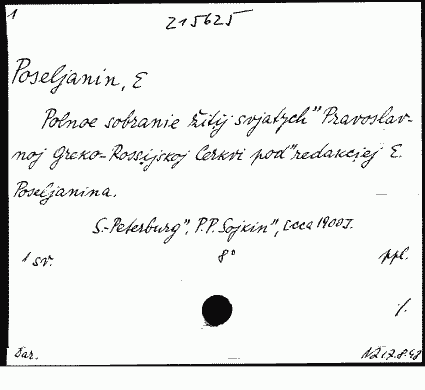 1
215625
Poseljanin, E
Polnoe sobranie žitij svjatych" Pravoslav-
noj Greko-Rossijskoj Cerkvi pod" redakciej E.
Poseljanina.
S.-Peterburg", P.P. Sojkin", [cca 1900].
1 sv. 8° ppl.
/.
Dar.